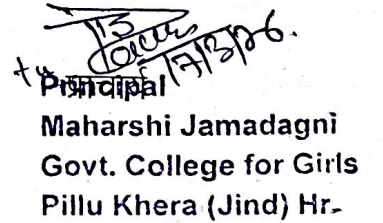 17/3/26.
प्राचार्य
Principal
Maharshi Jamadagni
Govt. College for Girls
Pillu Khera (Jind) Hr.